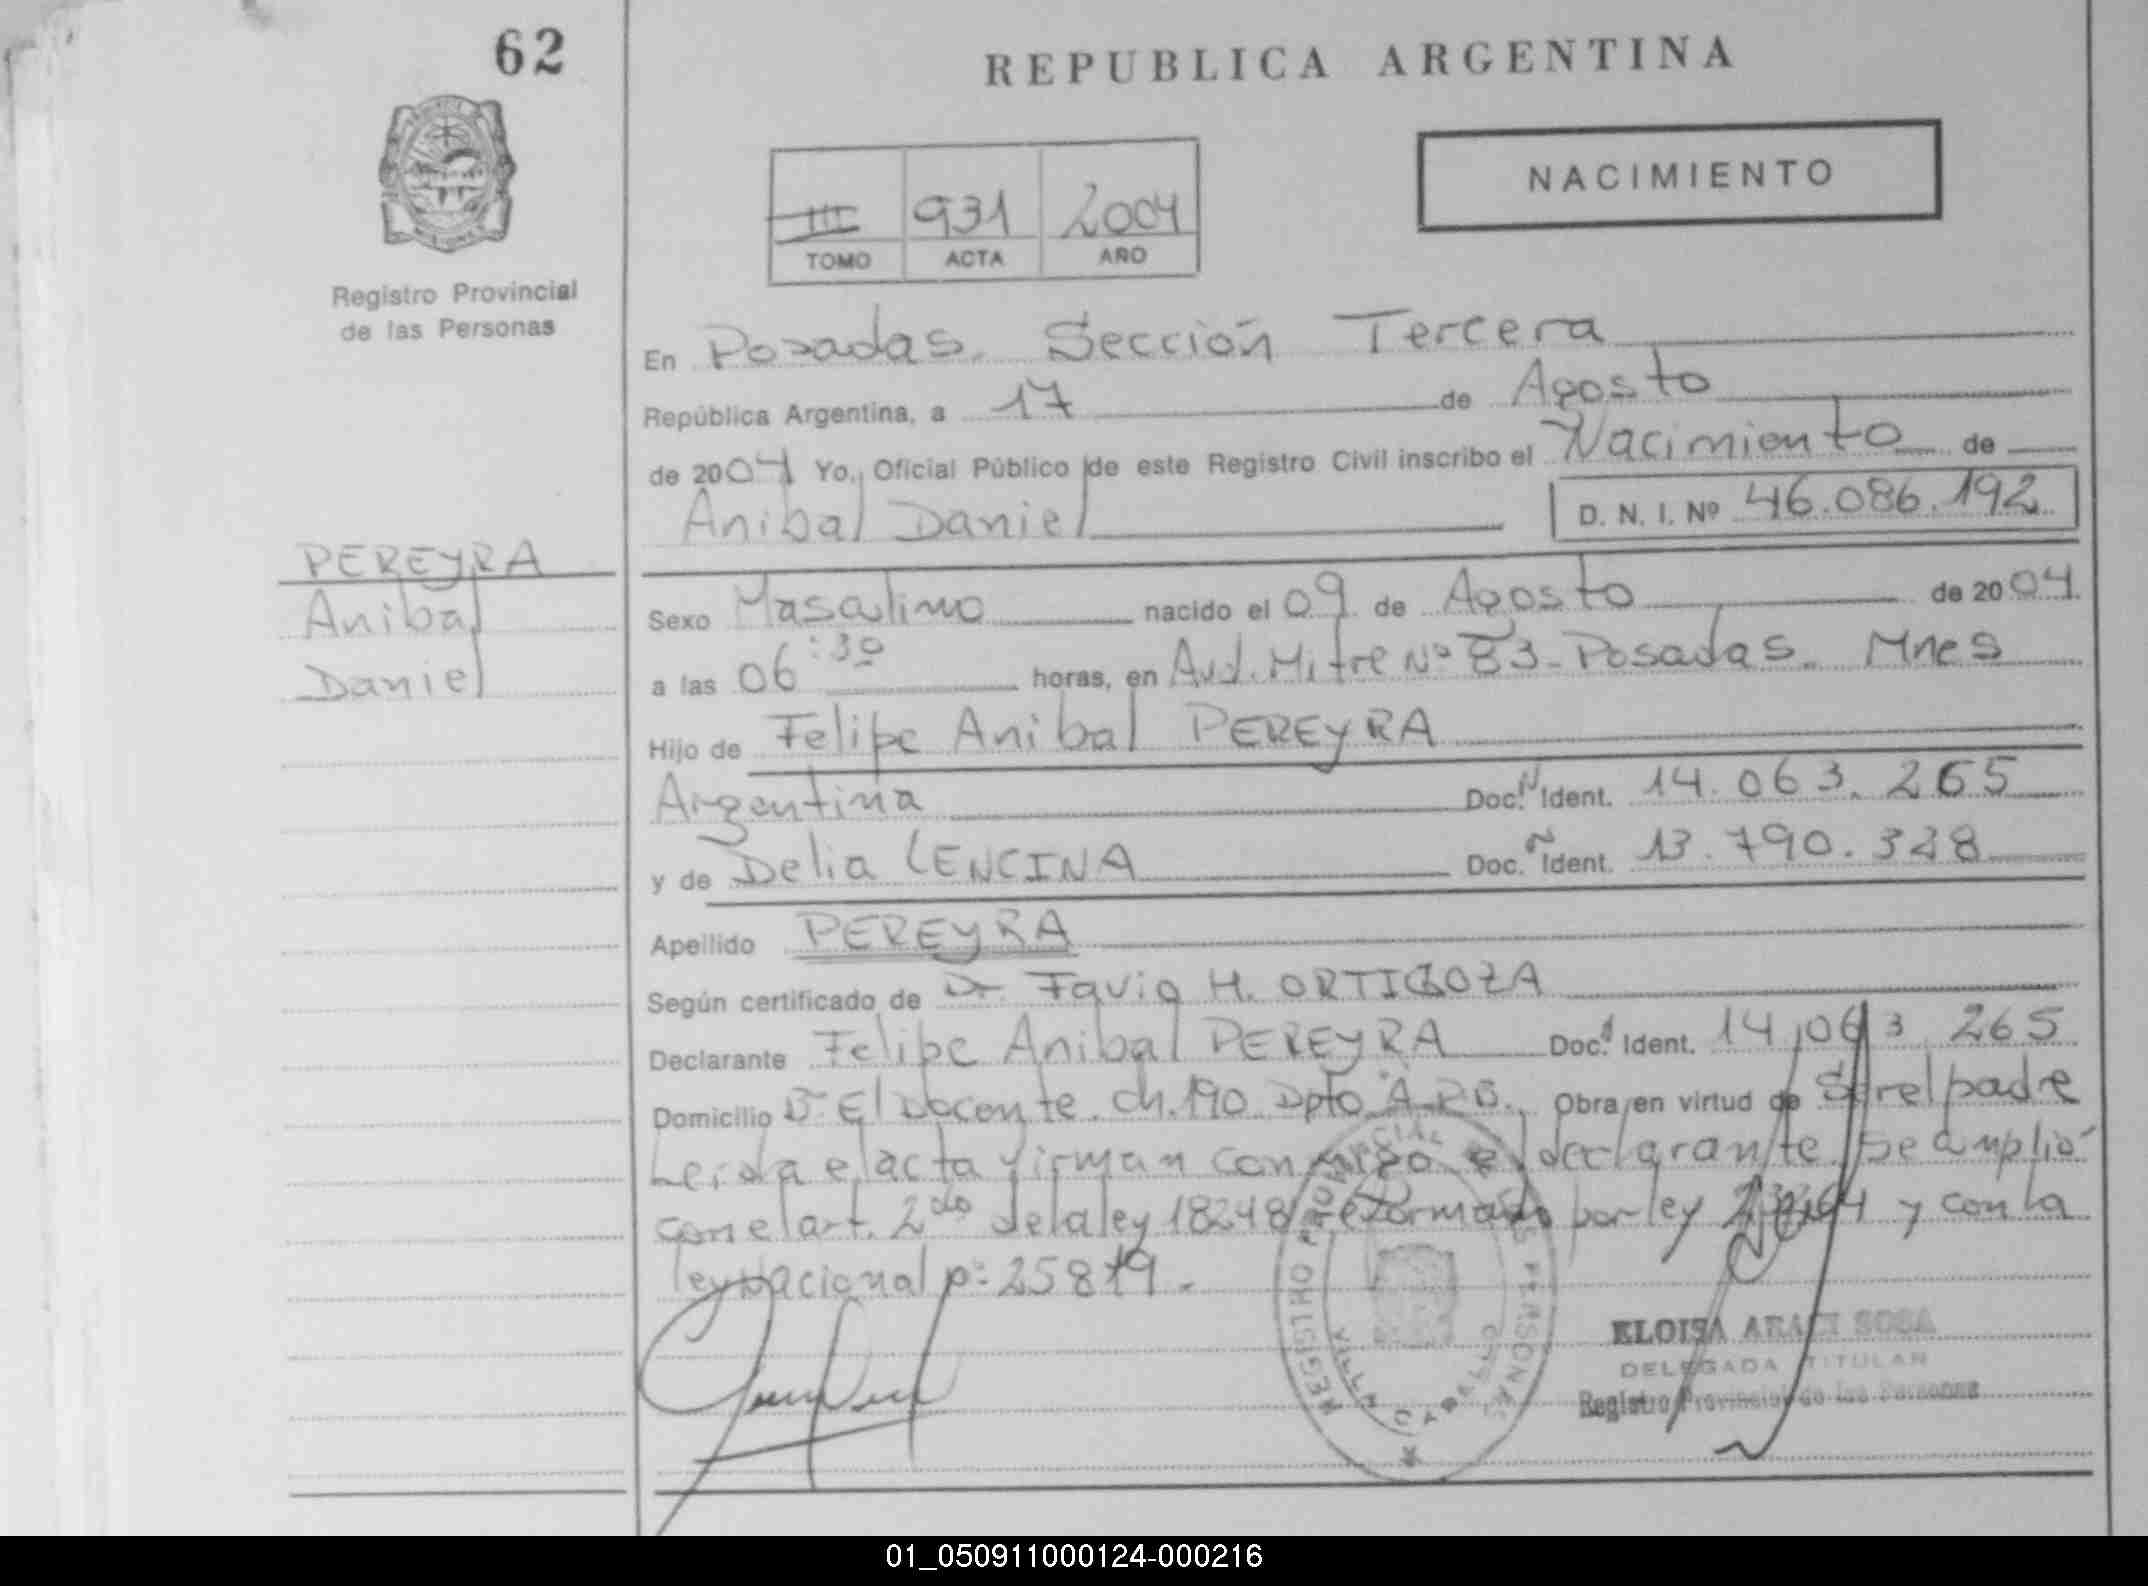 62
REPUBLICA ARGENTINA
NACIMIENTO
III 931 2004
TOMO ACTA AÑO
Registro Provincial
de las Personas
En Posadas. Sección Tercera
República Argentina, a 17 de Agosto
de 2004 Yo, Oficial Público de este Registro Civil inscribo el Nacimiento de
Anibal Daniel D. N. I. Nº 46.086.192
PEREYRA
Anibal
Daniel
Sexo Masculino nacido el 09 de Agosto de 2004
a las 06:30 horas, en Avd. Mitre Nº 83 - Posadas. Mnes
Hijo de Felipe Anibal PEREYRA
Argentina Doc. N Ident. 14.063.265
y de Delia LENCINA Doc. N Ident. 13.790.328
Apellido PEREYRA
Según certificado de Dr. Favio H. ORTIGOZA
Declarante Felipe Anibal PEREYRA Doc. Ident. 14.063.265
Domicilio Bº El Docente. Ch. 190 Dpto A. P.B. Obra en virtud de Ser el padre
Leida el acta firman conmigo el declarante. Se amplió
con el art. 2do de la ley 18248 reformado por ley y con la
ley Nacional nº 25819.
REGISTRO PROVINCIAL DE LAS PERSONAS
VILLA CABELLO
ELOISA ARACI SOSA
DELEGADA TITULAR
Registro Provincial de las Personas
01_050911000124-000216